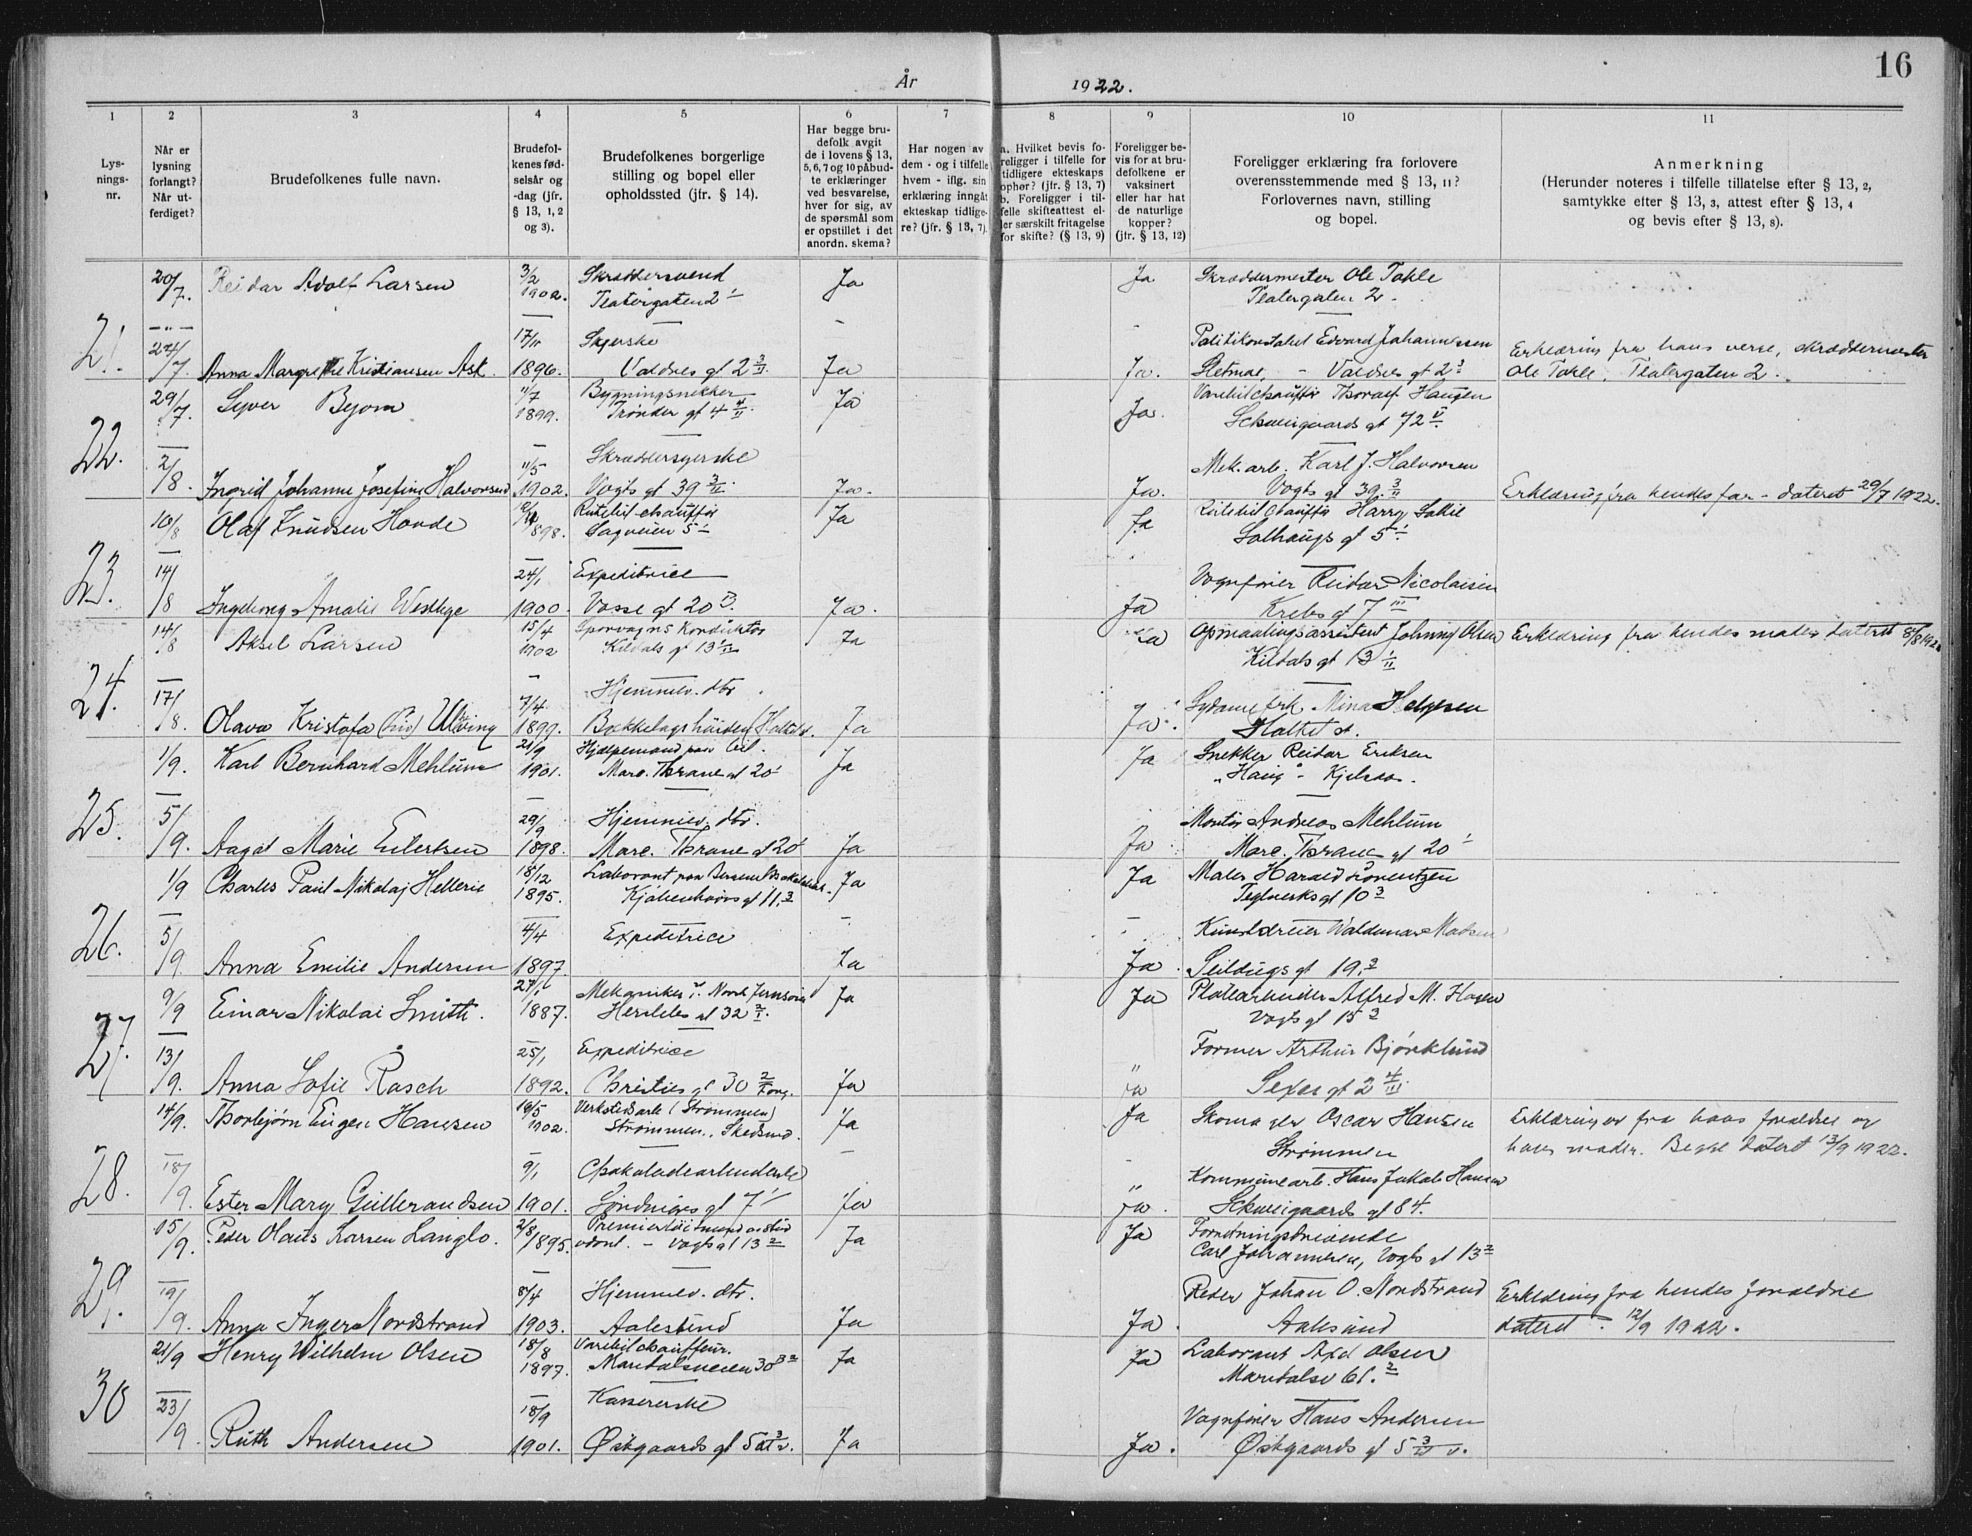 16
År 1922.
1 2 3 4 5 6 7 8 9 10 11
Lys-
nings-
nr.
Når er
lysning
forlangt?
Når ut-
ferdiget?
Brudefolkenes fulle navn.
Brudefol-
kenes fød-
selsår og
-dag (jfr.
§ 13, 1, 2
og 3).
Brudefolkenes borgerlige
stilling og bopel eller
opholdssted (jfr. § 14).
Har begge bru-
defolk avgit
de i lovens § 13,
5, 6, 7 og 10 påbud-
te erklæringer
ved besvarelse,
hver for sig, av
de spørsmål som
er opstillet i det
anordn. skema?
Har nogen av
dem - og i tilfelle
hvem - iflg. sin
erklæring inngåt
ekteskap tidlige-
re? (jfr. § 13, 7).
a. Hvilket bevis fo-
religger i tilfelle for
tidligere ekteskaps
ophør? (jfr. § 13, 7)
b. Foreligger i til-
felle skifteattest el-
ler særskilt fritagelse
for skifte? (§ 13, 9)
Foreligger be-
vis for at bru-
defolkene er
vaksinert
eller har hat
de naturlige
kopper?
(jfr. § 13, 12)
Foreligger erklæring fra forlovere
overensstemmende med § 13, 11?
Forlovernes navn, stilling
og bopel.
Anmerkning
(Herunder noteres i tilfelle tillatelse efter § 13, 2,
samtykke efter § 13, 3, attest efter § 13, 4
og bevis efter § 13, 8).
20/7. Reidar Adolf Larsen 3/2 1902. Skræddersvend Ja Ja Skræddermester Ole Tokle
Teatergaten 2 Teatergaten 2
21. 24/7. Anna Margrethe Kristiansen Ask 17/11 1896. Syerske Ja Ja. Politikonstabel Edvard Johannessen
Valdres gt 2 Valdres gt 2
Erklæring fra hans verge, skræddermester
Ole Tokle, Teatergaten 2.
22. 29/7. Syver Bjorn 11/7 1899. Bygningssnekker Ja Ja. Varebilchauffør Thoralf Haugen
Trønder gt 4 Schweigaards gt 72
2/8. Ingrid Johanne Josefine Halvorsen 11/5 1902. Skræddersyerske Ja. Ja. Mek. arb. Karl J. Halvorsen
Vogts gt 39 Vogts gt 39.
Erklæring fra hendes far - dateret 29/7 1922.
23. 10/8 Olaf Knudsen Hovde 1898. Rutebilchauffør Ja Ja Rutebilchauffør Harry
Sagveien 5 Solhaugs gt 5
14/8 Ingeborg Amalie 24/1 1900. Expeditrice Ja. Ja Vognfører Reidar Nicolaisen
Vosse gt 20 Krebs gt 7 III
24. 14/8 Aksel Larsen 15/4 1902 Sporvogns konduktør Ja Ja Opmaalingsassistent Johnny Olsen
Kildals gt 13 Kildals gt 13
Erklæring fra hendes moder dateret
17/8. Olava Kristofa Ulving 7/4 1899. Hjemmev. dtr. Ja Ja. Sydame frk. Mina Helgesen
25. 1/9. Karl Bernhard Mehlum 21/9 1901. Hjælpemand paa bil. Ja Ja Snekker Reidar Eriksen
Marc. Thrane gt 20 "Haug" - Kjelsaas.
5/9. Aagot Marie Eilertsen 29/9 1898. Hjemmev. dtr. Ja Ja Montør Andreas Mehlum
Marc. Thrane gt 20 Marc. Thrane gt 20
26. 1/9 Charles Paul Nikolaj Hellerie 18/12 1895. Laborant paa Ja Ja Maler Harald Lorentzen
Kjøbenhavns gt 11. 3 Teglverks gt 10 3
5/9. Anna Emilie Andersen 4/4 1897. Expeditrice Ja Ja Kunstdreier Waldemar Madsen
Seildugs gt 19. 3
27. 9/9 Einar Nikolai Smith. 1887. Mekaniker Ja Ja Platearbeider Alfred M. Hagen
Herslebs gt 32 Vogts gt 15 3
13/9. Anna Sofie Rasch 25/1 1892. Expeditrice Ja Ja Former Arthur Bjørklund
Christies gt 30 Sexes gt 2
28. 14/9. Thorbjørn Eugen Hansen 1902. Verkstedarb. (Strømmen) Ja Ja Skomager Oscar Hansen
Strømmen, Skedsmo. Strømmen
Erklæringer fra hans forældre og
hans moder. Begge dateret 13/9 1922.
18/9. Ester Mary Gullerandsen 9/1 1901. Chokoladearbeiderske Ja Ja. Kommunearb. Hans Jakob Hansen
gt 7 Schweigaards gt 84.
29. 15/9. Peder Olaus Larsen Langlo. 2/8 1895. Premierløitnand og stud. Ja Ja Forretningsdrivende
odont. - Vogts gt 13 Carl Johannesen, Vogts gt 13
19/9. Anna Inger Nordstrand 8/4 1903. Hjemmev. dtr. Ja Ja. Reder Johan O. Nordstrand
Aalesund Aalesund
Erklæring fra hendes forældre
dateret 12/9 1922.
30 21/9 Henry Wilhelm Olsen 18/8 1897. Varebilchauffeur. Ja Ja Laborant Axel Olsen
Maridalsveien 30 Maridalsv 61.
23/9. Ruth Andersen 18/9 1901. Kassererske Ja Ja. Vognfører Hans Andersen
Østgaards gt 5 Østgaards gt 5